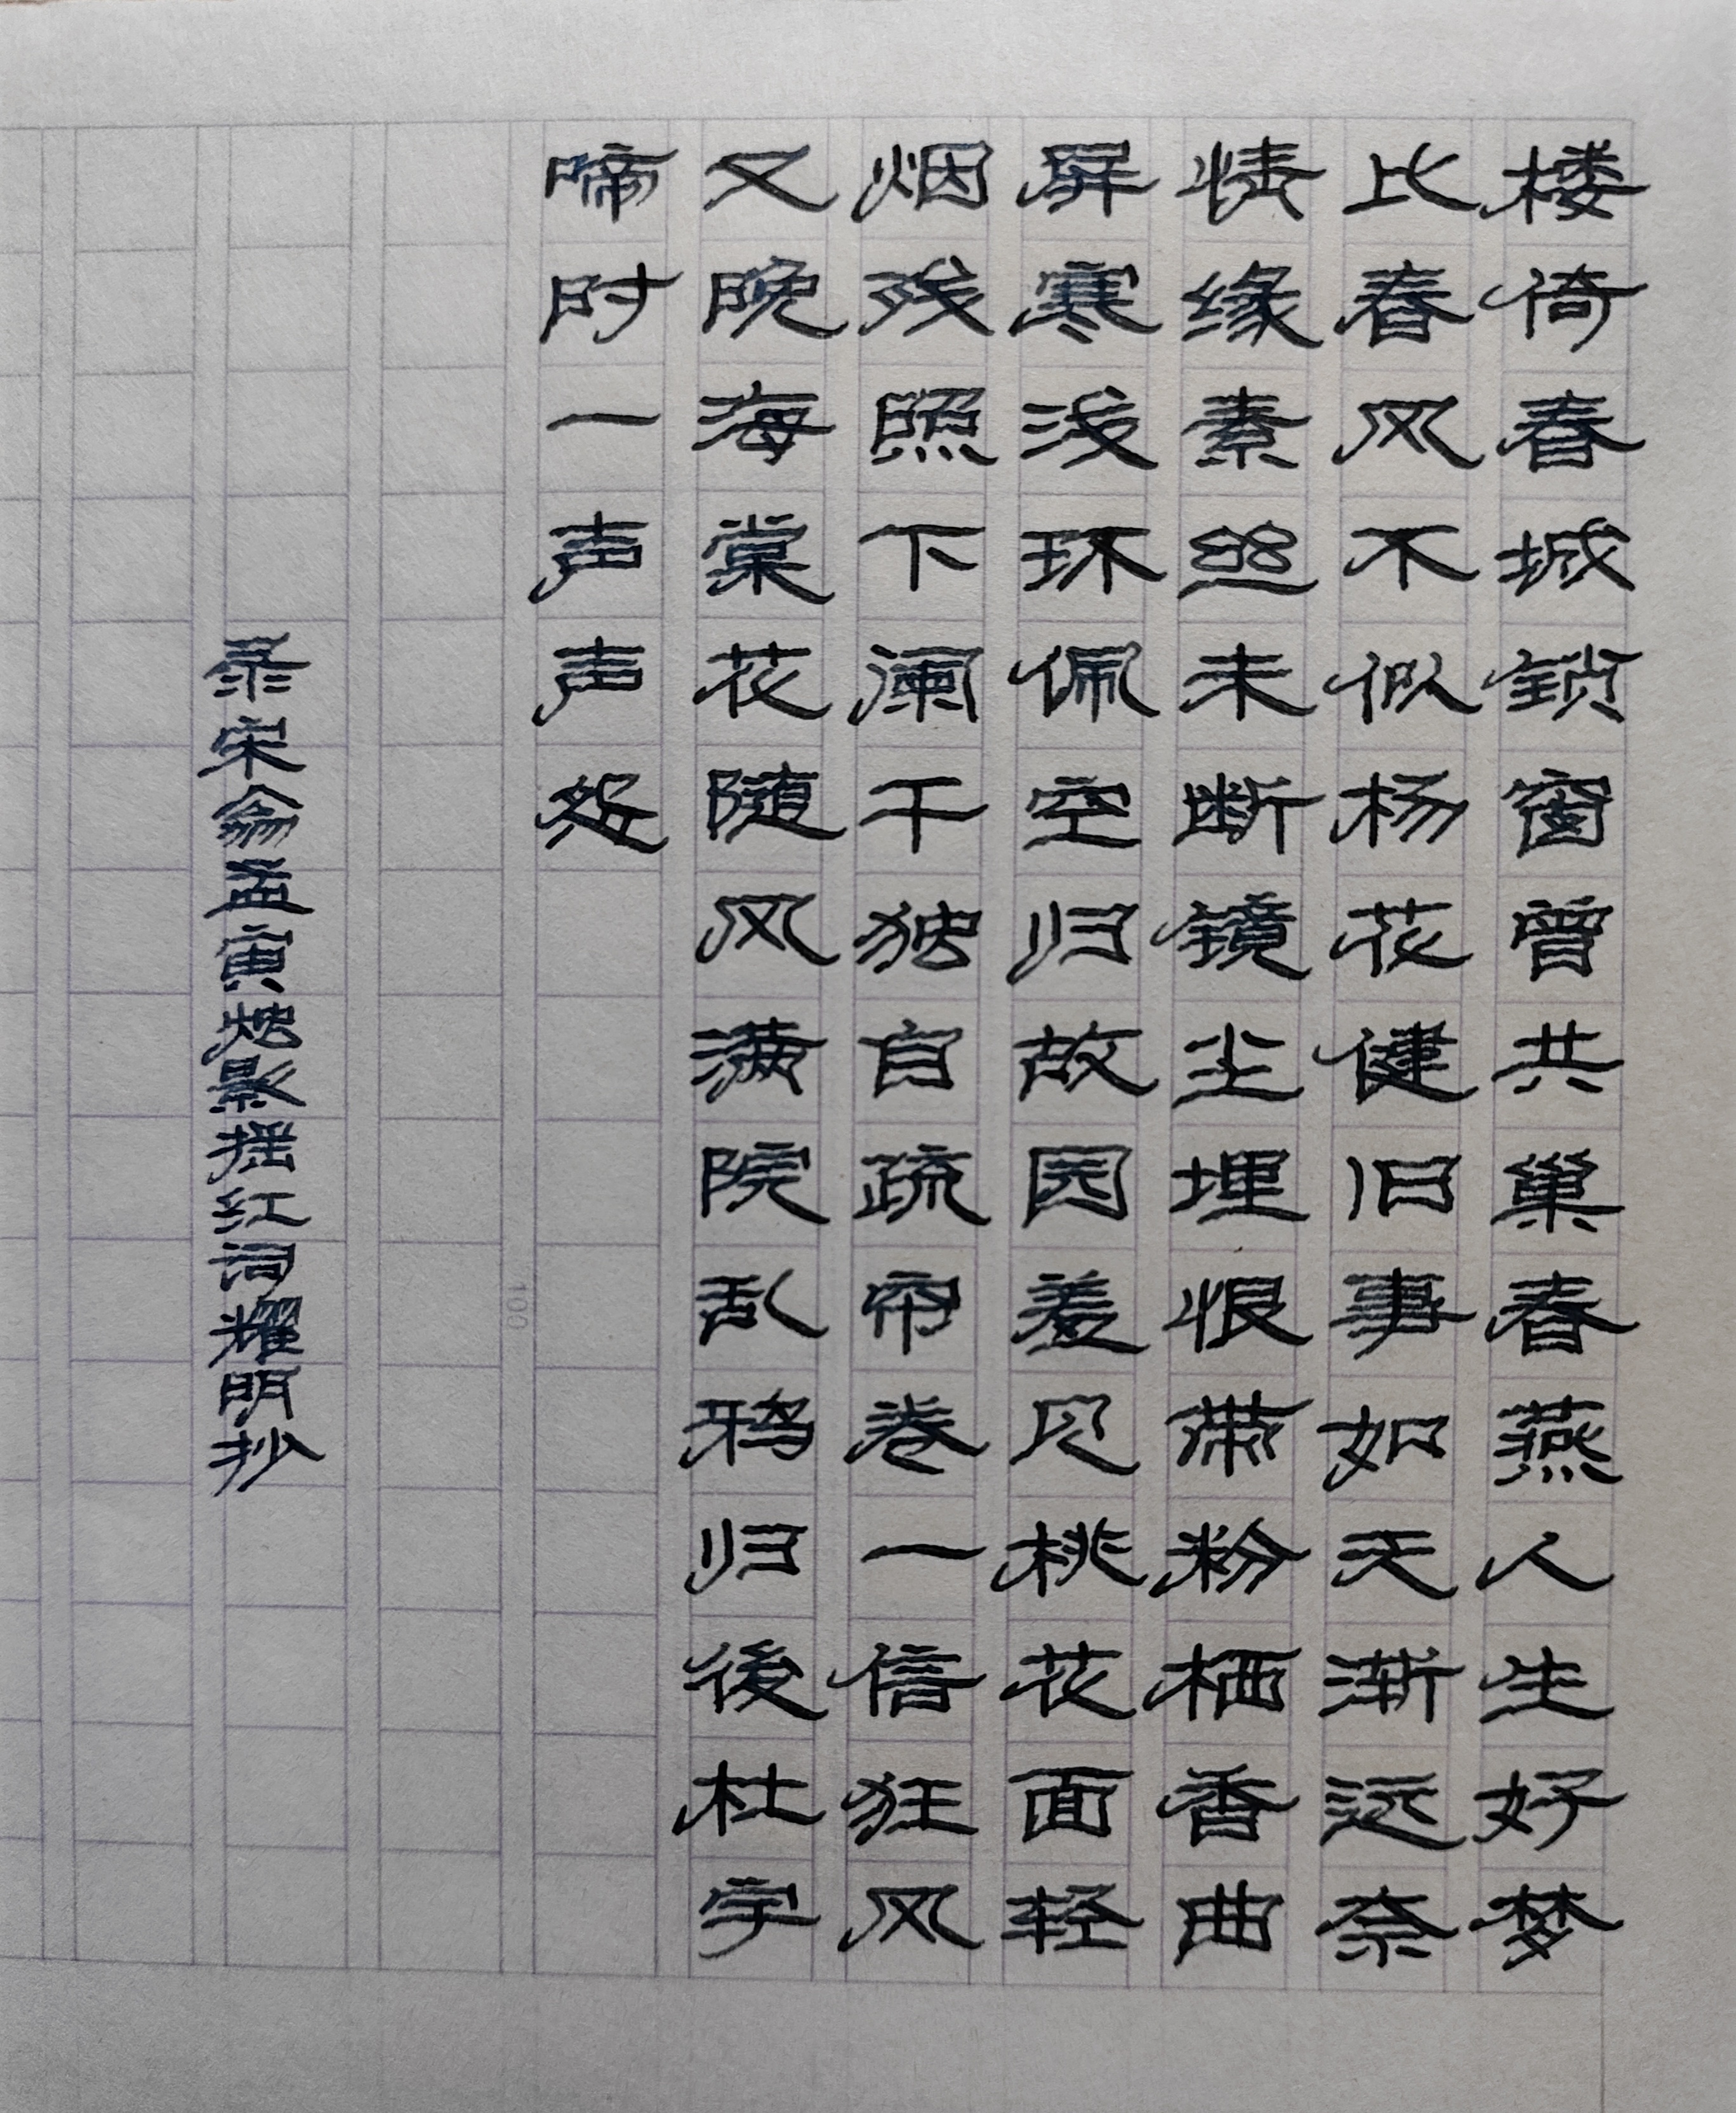 楼倚春城锁窗曾共巢春燕人生好梦
比春风不似杨花健旧事如天渐远奈
情缘素丝未断镜尘埋恨带粉栖香曲
屏寒浅环佩空归故园羞见桃花面轻
烟残照下阑干独自疏帘卷一信狂风
又晚海棠花随风满院乱鸦归後杜宇
啼时一声声怨
录宋俞孟寅烛影摇红词耀明抄
100